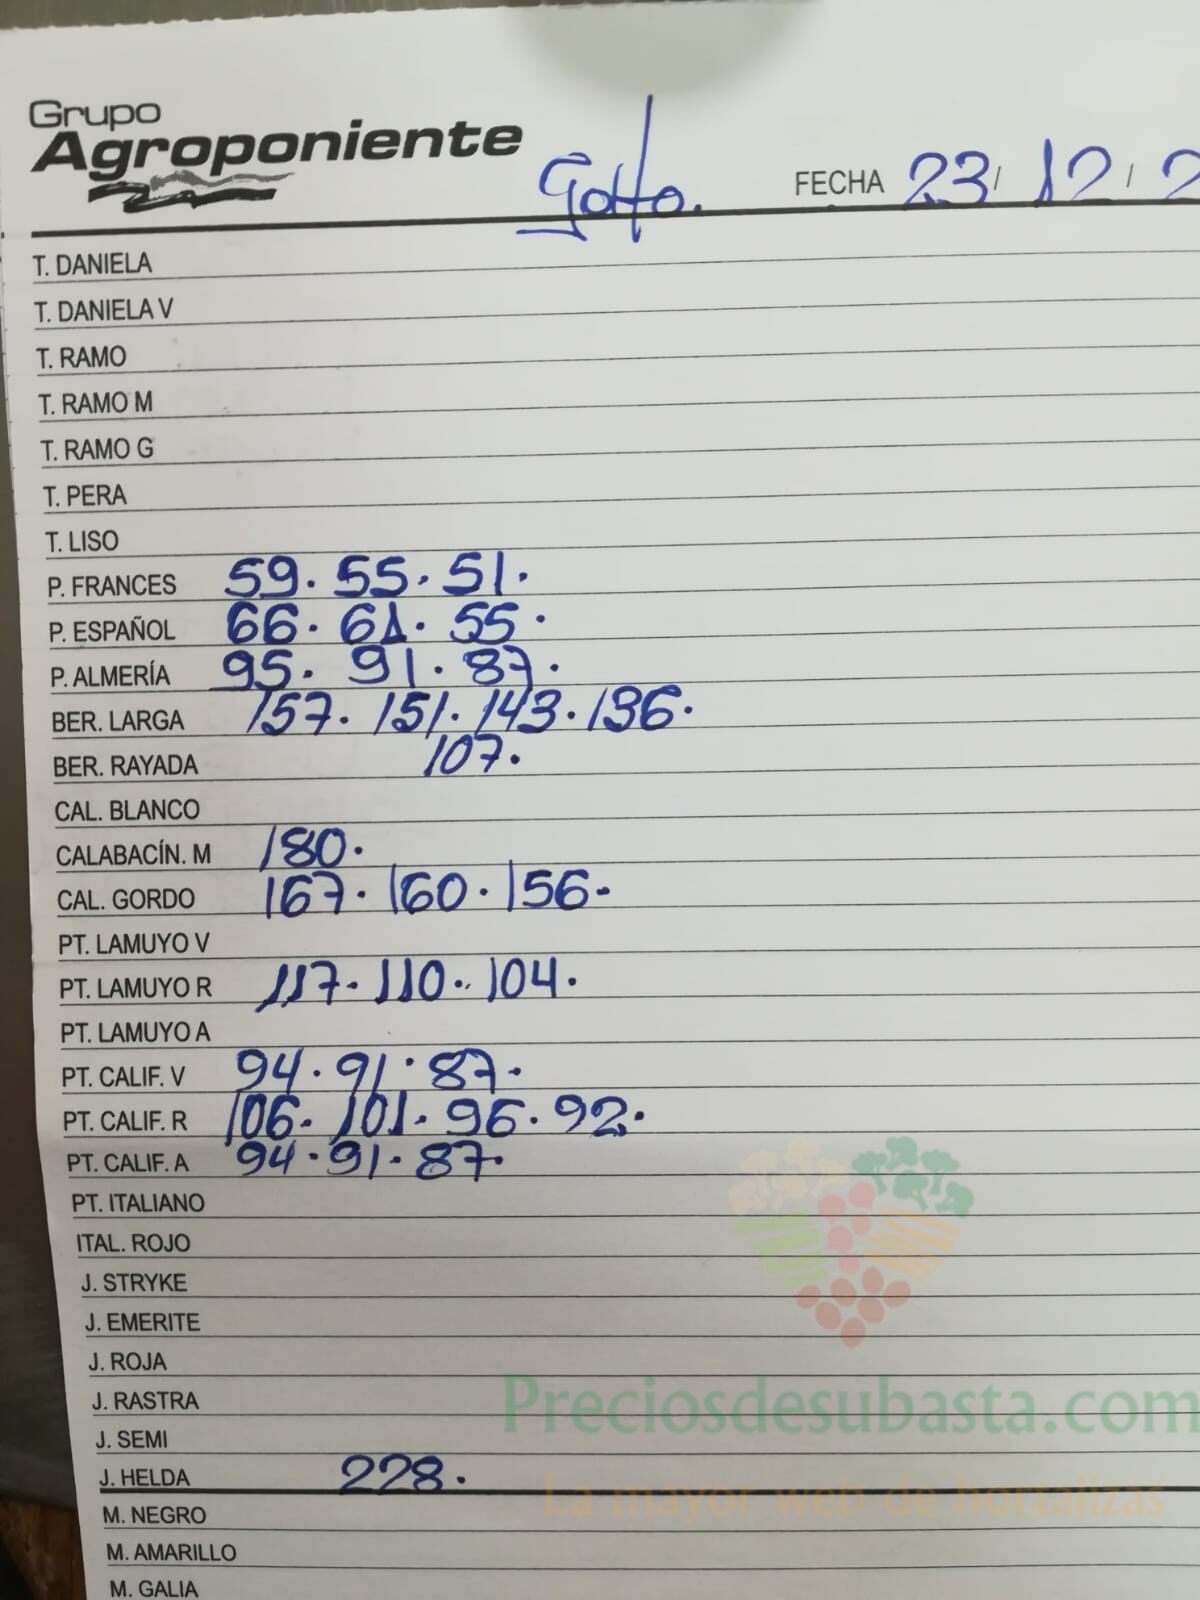 Grupo
Agroponiente
Golfo. FECHA 23/ 12 / 2
T. DANIELA
T. DANIELA V
T. RAMO
T. RAMO M
T. RAMO G
T. PERA
T. LISO
P. FRANCES 59. 55. 51.
P. ESPAÑOL 66. 61. 55.
P. ALMERÍA 95. 91. 87.
BER. LARGA 157. 151. 143. 136.
BER. RAYADA 107.
CAL. BLANCO
CALABACÍN. M 180.
CAL. GORDO 167. 160. 156.
PT. LAMUYO V
PT. LAMUYO R 117. 110. 104.
PT. LAMUYO A
PT. CALIF. V 94. 91. 87.
PT. CALIF. R 106. 101. 96. 92.
PT. CALIF. A 94. 91. 87.
PT. ITALIANO
ITAL. ROJO
J. STRYKE
J. EMERITE
J. ROJA
J. RASTRA
J. SEMI
J. HELDA 228.
M. NEGRO
M. AMARILLO
M. GALIA
Preciosdesubasta.com
La mayor web de hortalizas